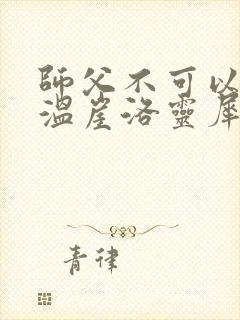 師父不可以
溫崖洛靈犀
青律